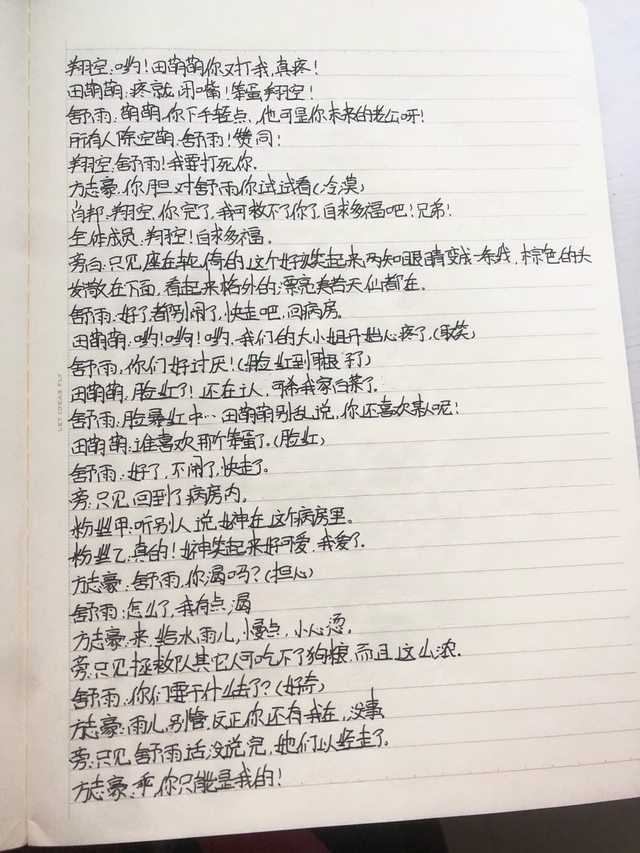 翔空:哟!田萌萌你又打我,真疼!
田萌萌:疼就闭嘴!笨蛋翔空!
舒雨:萌萌,你下手轻点、他可是你未来的老公呀!
所有人除空萌、舒雨!赞同!
翔空:舒雨!我要打死你.
方志豪:你胆对舒雨你试试看(冷漠)
肖邦:翔空,你完了,我可救不了你了,自求多福吧!兄弟!
全体成员:翔空!自求多福。
旁白:只见座在轮倚的这个好动笑起来,两知眼睛变成一条线,棕色的头
发散在下面,看起来格外的:漂亮美若天仙都在。
舒雨:好了,都别闹了,快走吧,回病房。
田萌萌:哟!哟!哟,我们的大小姐开始心疼了,(取笑)
舒雨,你们好讨厌!(脸红到耳根子了)
田萌萌,脸红了!还在认,可希我家白菜了.
舒雨,脸暴红中…田萌萌别乱说,你还喜欢某人呢!
田萌萌:谁喜欢那个笨蛋了。(脸红)
舒雨:好了,不闹了,快走了。
旁:只见回到了病房内。
粉丝甲:听别人说,女神在这个病房里。
粉丝乙,真的!女神笑起来好可爱,我爱了.
方志豪:舒雨,你渴吗?(担心)
舒雨:怎么了,我有点,渴
方志豪:来,给水,雨儿,慢点,小心烫。
旁:只见拯救队其它人可吃不了狗粮,而且这么浓.
舒雨:你们要干什么去了?(好奇)
方志豪:雨儿,别管,反正你还有我在,没事
旁:只见舒雨话没说完,她们以经走了.
方志豪:乖,你只能是我的!
LET IDEAS FLY